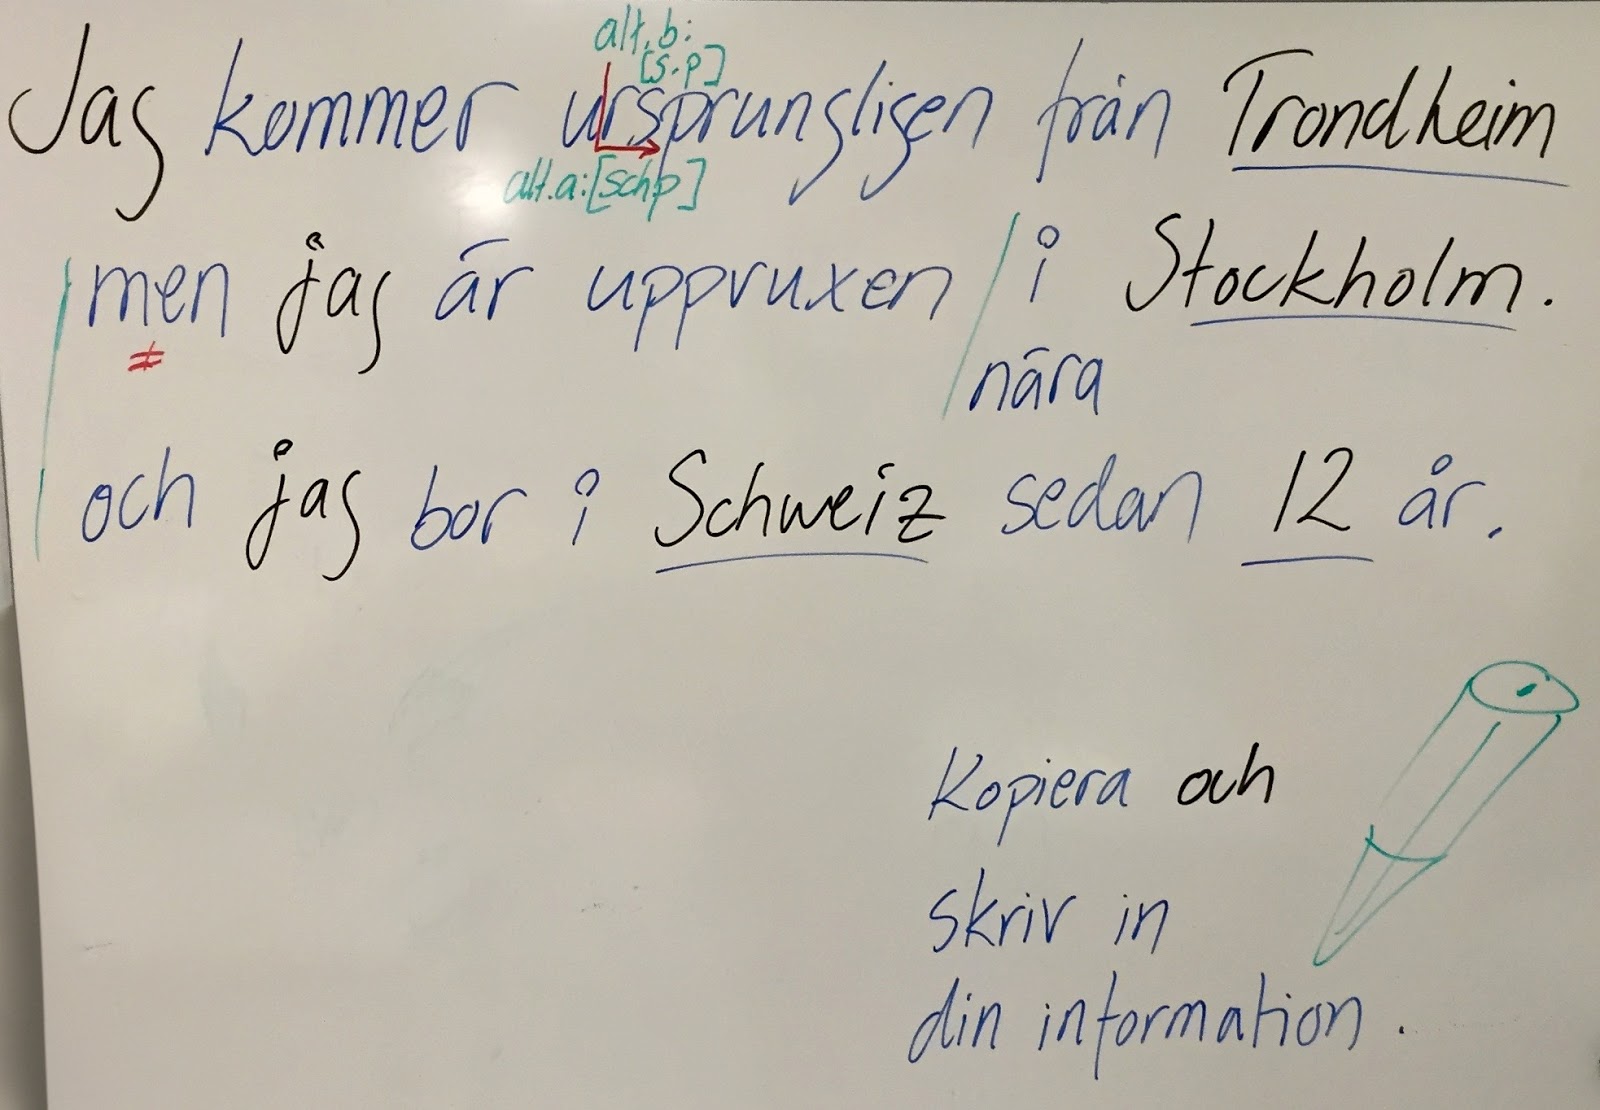 alt. b:
[s.p]
Jag kommer ursprungligen från Trondheim
alt. a: [sch.p]
men jag är uppvuxen / i Stockholm.
≠
nära
och jag bor i Schweiz sedan 12 år.
Kopiera och
skriv in
din information.